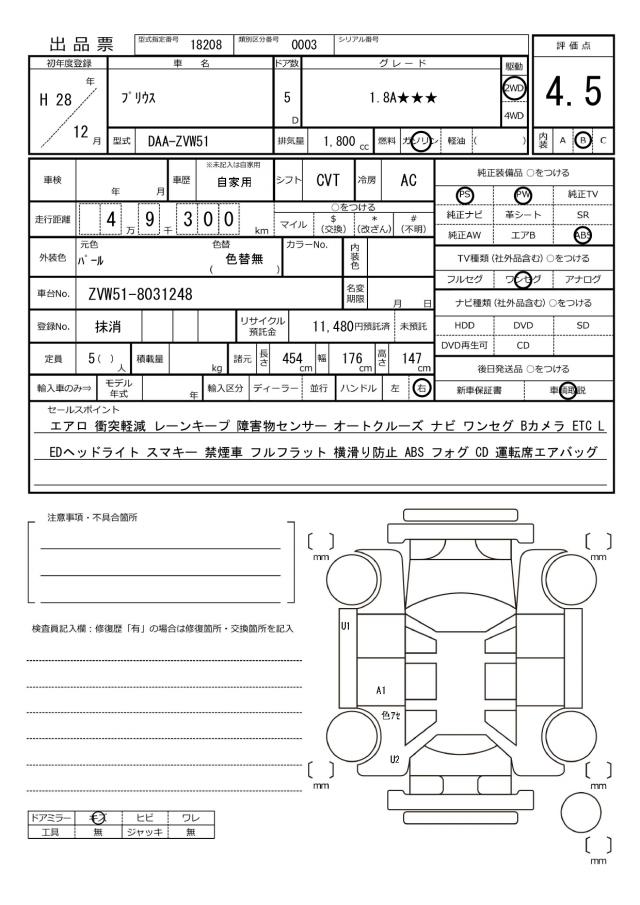 出品票 型式指定番号 18208 類別区分番号 0003 シリアル番号
評価点
4.5
初年度登録 車名 ドア数 グレード 駆動
H 28 年 12 月 プリウス 5 D 1.8A★★★ 2WD
4WD
型式 DAA-ZVW51 排気量 1,800 cc 燃料 ガソリン 軽油 ( ) 内装 A B C
車検 年 月 車歴 ※未記入は自家用 自家用 シフト CVT 冷房 AC
走行距離 4 万 9 千 300 km
○をつける
マイル $ (交換) * (改ざん) # (不明)
外装色 元色 パール 色替 ( 色替無 ) カラーNo. 内装色
車台No. ZVW51-8031248 名変期限 月 日
登録No. 抹消 リサイクル預託金 11,480円預託済 未預託
定員 5 ( ) 人 積載量 kg 諸元 長さ 454 cm 幅 176 cm 高さ 147 cm
輸入車のみ⇒ モデル年式 年 輸入区分 ディーラー 並行 ハンドル 左 右
純正装備品 ○をつける
PS PW 純正TV
純正ナビ 革シート SR
純正AW エアB ABS
TV種類 (社外品含む) ○をつける
フルセグ ワンセグ アナログ
ナビ種類 (社外品含む) ○をつける
HDD DVD SD
DVD再生可 CD
後日発送品 ○をつける
新車保証書 車輌取説
セールスポイント
エアロ 衝突軽減 レーンキープ 障害物センサー オートクルーズ ナビ ワンセグ Bカメラ ETC L
EDヘッドライト スマキー 禁煙車 フルフラット 横滑り防止 ABS フォグ CD 運転席エアバッグ
注意事項・不具合箇所
検査員記入欄：修復歴「有」の場合は修復箇所・交換箇所を記入
ドアミラー キズ ヒビ ワレ
工具 無 ジャッキ 無
[ ] mm
[ ] mm
U1
A1
色アセ
U2
[ ] mm
[ ] mm
[ ] mm